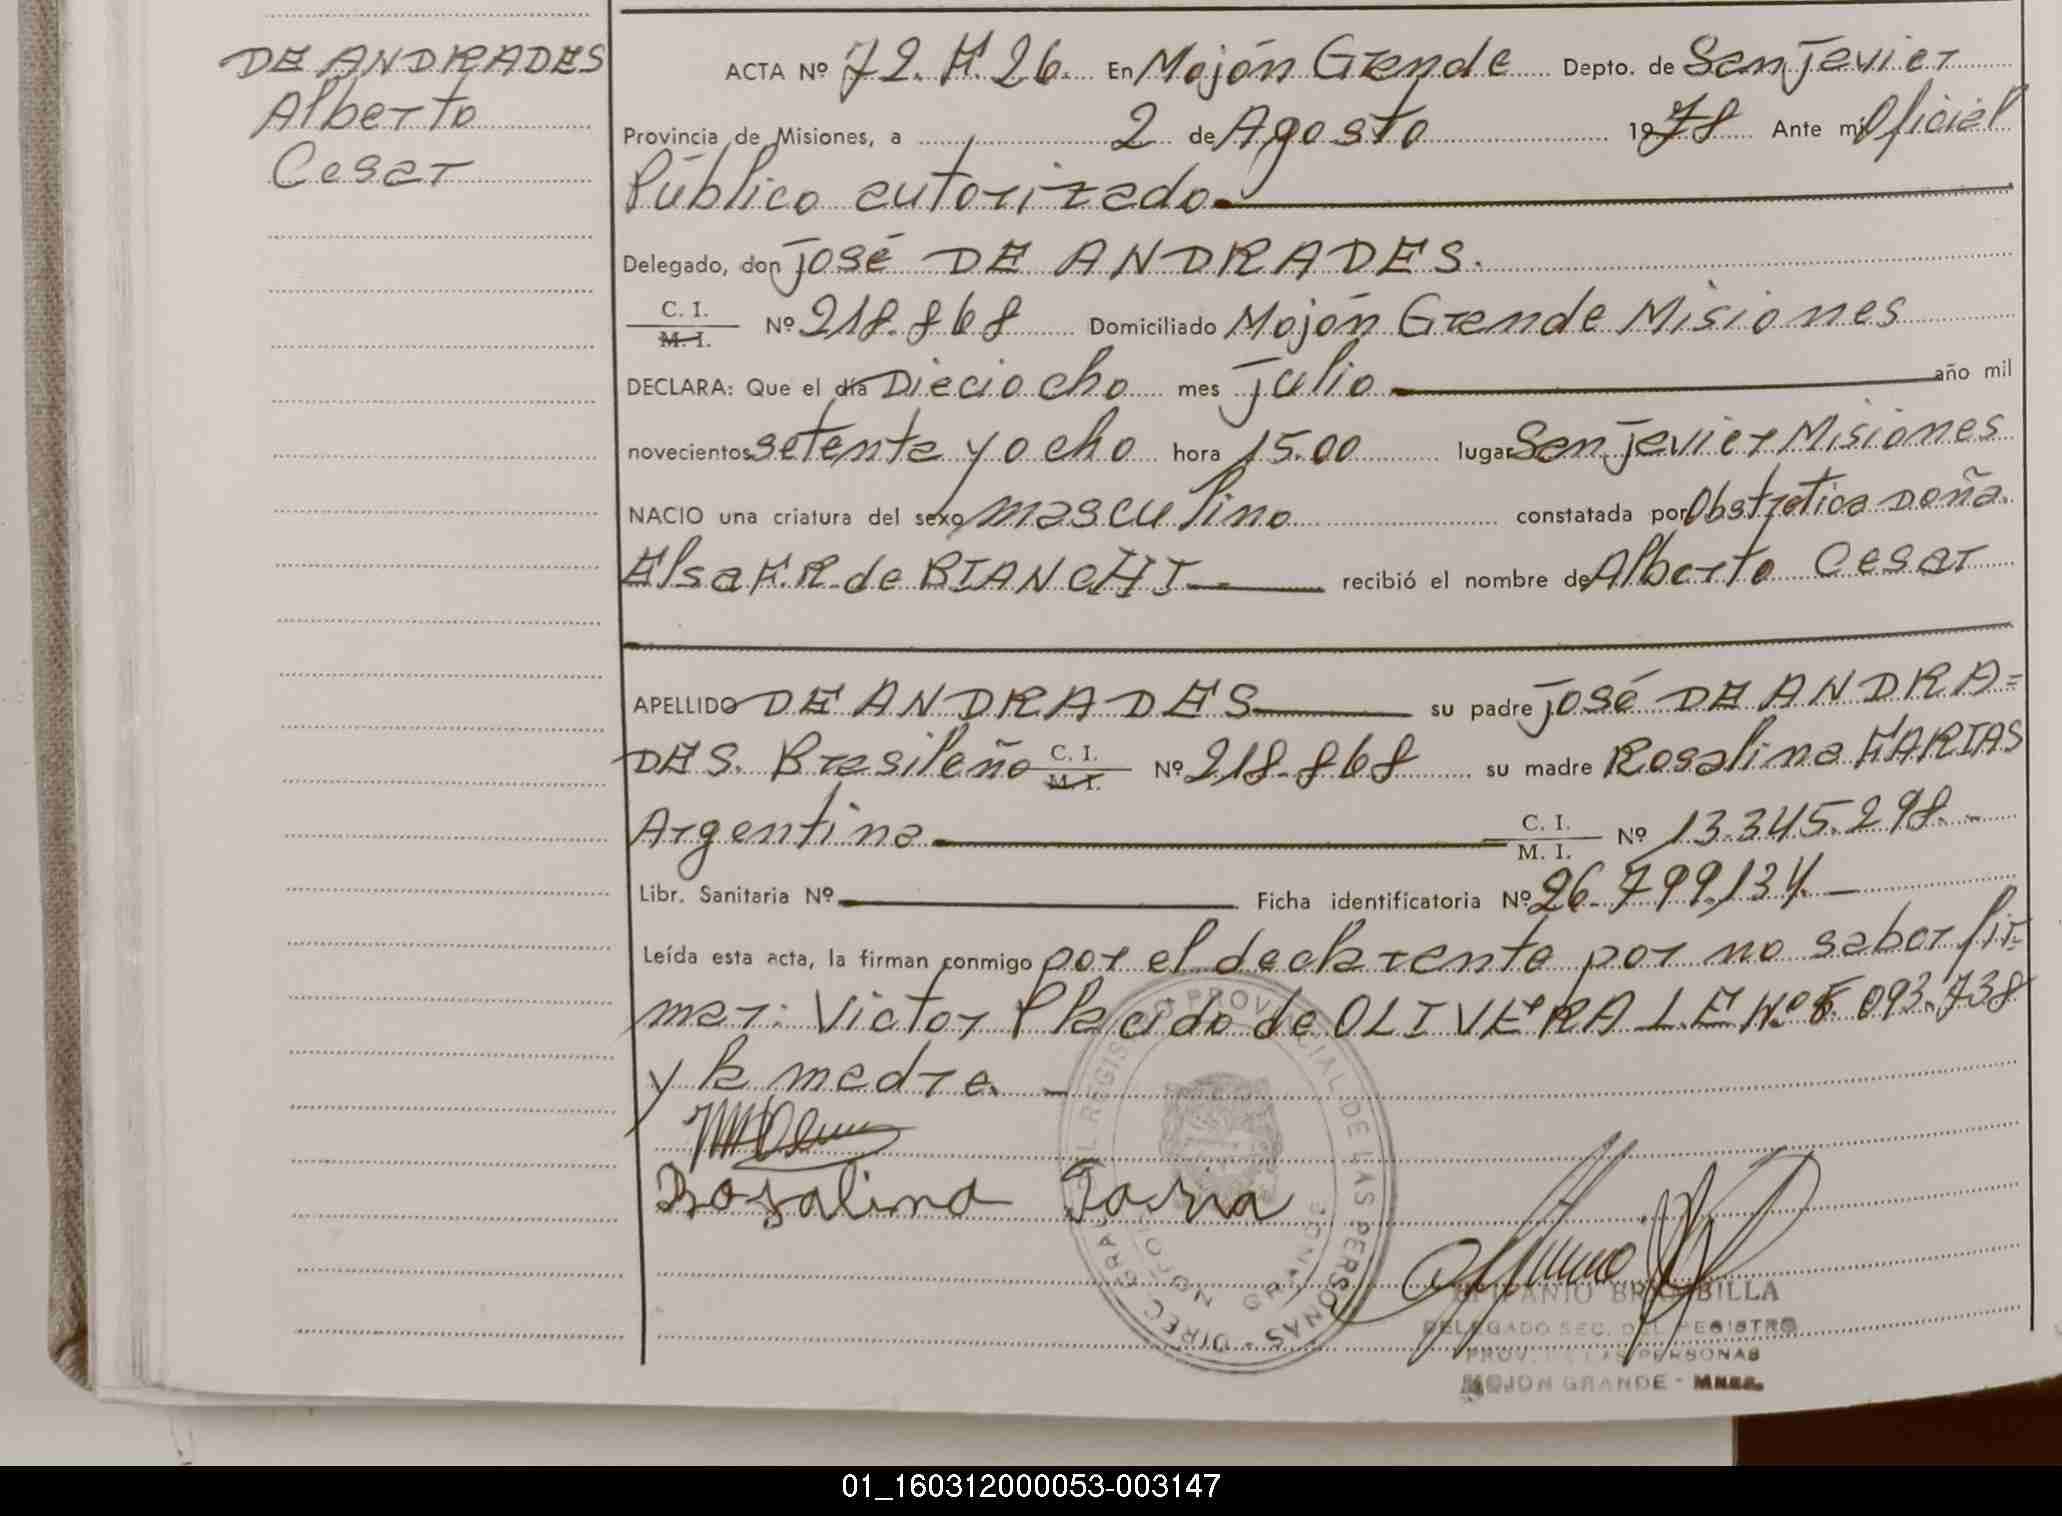 DE ANDRADES
Alberto
Cesar
ACTA Nº 72. F. 26. En Mojón Grande Depto. de San Javier
Provincia de Misiones, a 2 de Agosto 1978 Ante mi Oficial
Público autorizado
Delegado, don José DE ANDRADES.
C. I.
M. I. Nº 218.868 Domiciliado Mojón Grande Misiones
DECLARA: Que el día Dieciocho mes Julio año mil
novecientos setenta y ocho hora 15.00 lugar San Javier Misiones
NACIO una criatura del sexo masculino constatada por Obstretica Doña
Elsa F.R. de BIANCHI recibió el nombre de Alberto Cesar
APELLIDO DE ANDRADES su padre José DE ANDRA=
DES. Brasileño C. I. M. I. Nº 218.868 su madre Rosalina FARIAS
Argentina C. I. M. I. Nº 13.345.298.-
Libr. Sanitaria Nº Ficha identificatoria Nº 26.799.134.-
Leída esta acta, la firman conmigo por el declarante por no saber fir-
mar: Victor Placido de OLIVERA L.E Nº 5.093.738
y la madre. -
Rosalina Faria
DIREC. GRAL. REGISTRO PROVINCIAL DE LAS PERSONAS
MOJON GRANDE
EPIFANIO BRAMBILLA
DELEGADO SEC. DEL REGISTRO
PROV. DE LAS PERSONAS
MOJON GRANDE - Mnes.
01_160312000053-003147